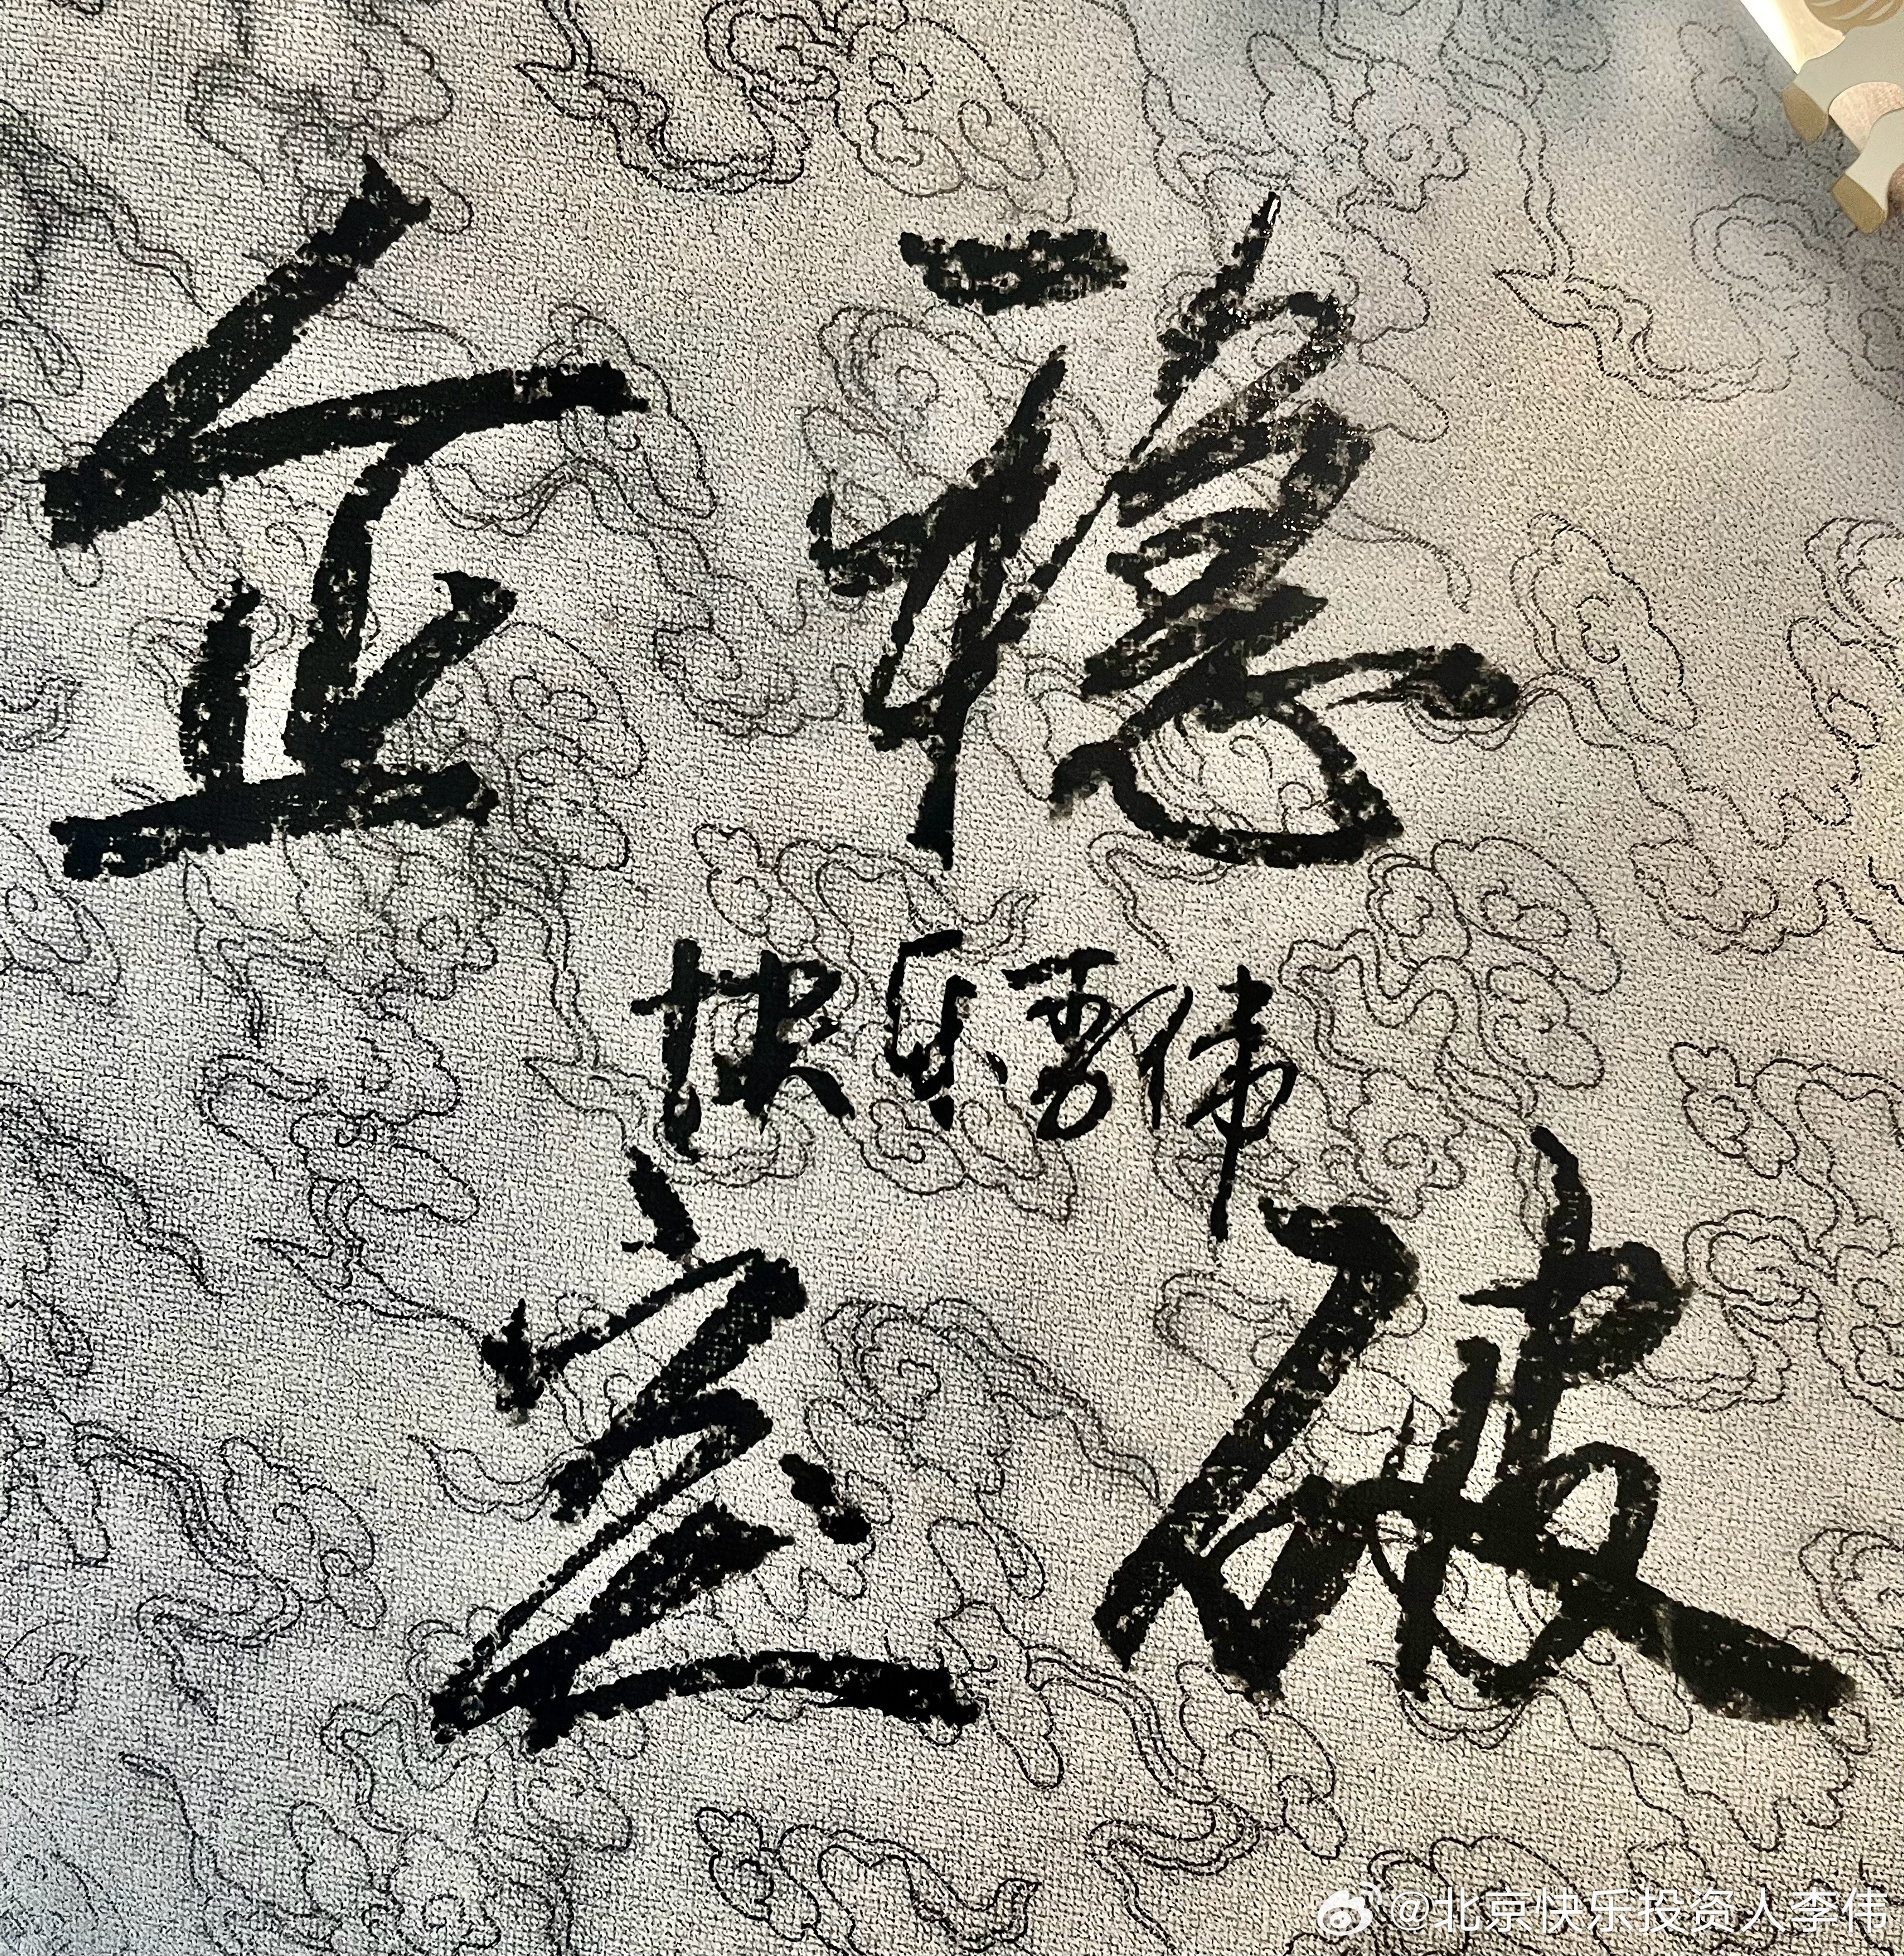 企稳
快乐李伟
突破
@北京快乐投资人李伟